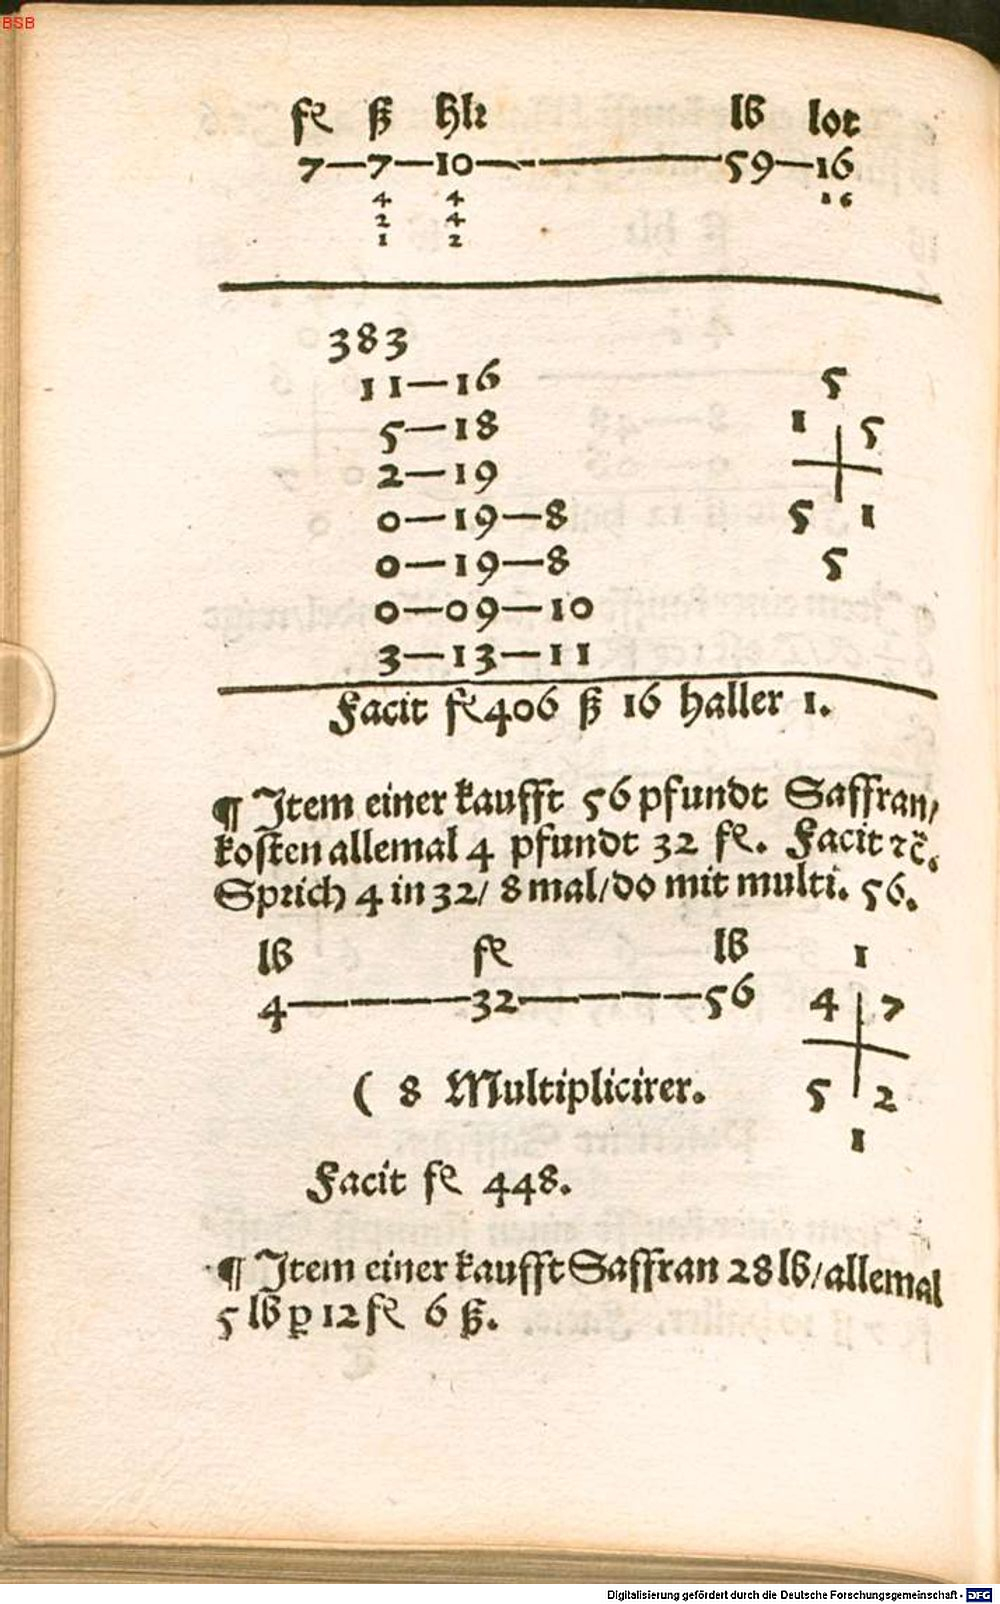 BSB
fl ß hlr lb lot
7—7—10———59—16
4 4 16
2 4
1 2
383
11—16
5—18
2—19
0—19—8
0—19—8
0—09—10
3—13—11
5
1 5
5 1
5
Facit fl 406 ß 16 haller 1.
¶ Item einer kaufft 56 pfundt Saffran/
kosten allemal 4 pfundt 32 fl. Facit ꝛc̃.
Sprich 4 in 32/ 8 mal/do mit multi. 56.
lb fl lb
4———32———56
1
4 7
5 2
1
( 8 Multiplicirer.
Facit fl 448.
¶ Item einer kaufft Saffran 28 lb/allemal
5 lb ꝑ 12 fl 6 ß.
Digitalisierung gefördert durch die Deutsche Forschungsgemeinschaft - DFG